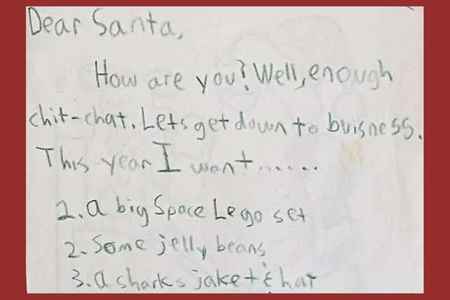 Dear Santa,
How are you? Well, enough
chit-chat. Lets get down to buisness.
This year I want......
1. a big Space Lego set
2. Some jelly beans
3. a sharks jaket & hat